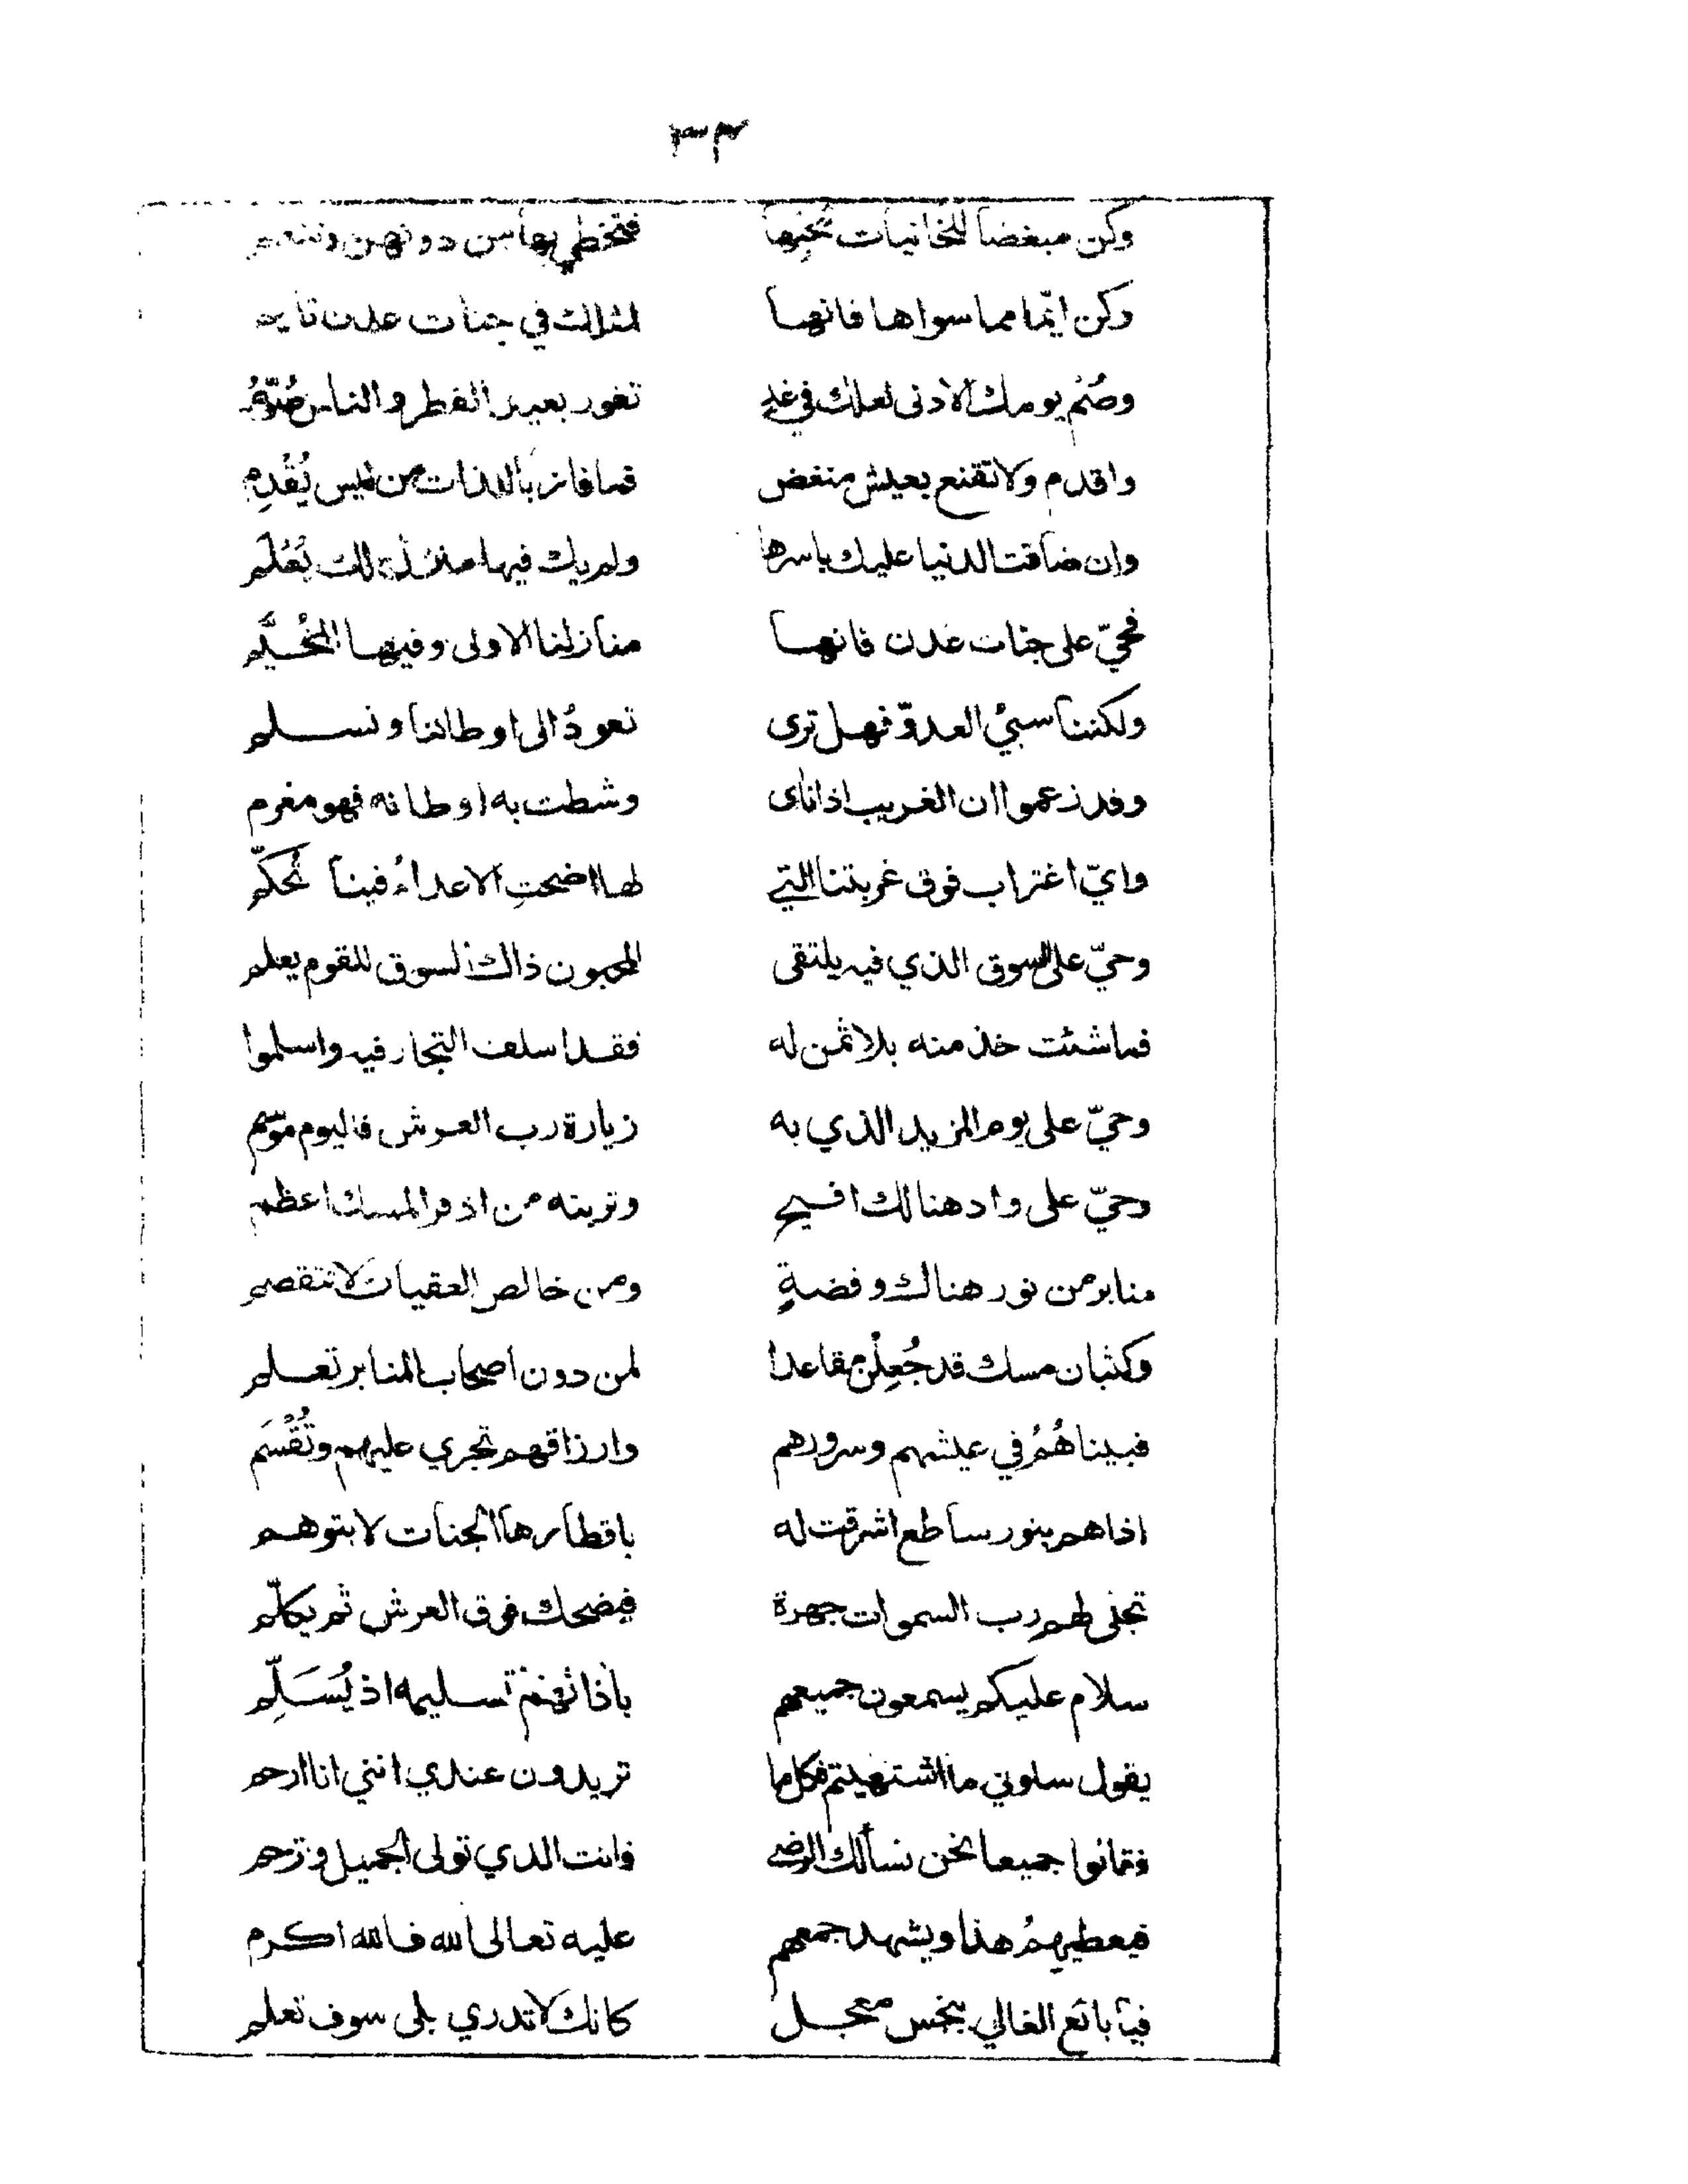 ٣٣
وكن مبغضاً للخائنيات لحبها فتحظى بها من دونهن وتنعم
وكن ايّما مما سواها فانها لمثلك في جنات عدن تأيم
وصُمْ يومك الادنى لعلك في غدٍ تفوز بعيد الفطر والناس صُوّمُ
واقدم ولا تقنع بعيش منغض فما فاز بالذات من ليس يُقْدِم
وان ضاقت الدنيا عليك باسرها ولم يك فيها منزل لك يُعْلَم
فحيّ على جنات عدن فانها منازلنا الاولى وفيها المُخَيَّم
ولكننا سبيُ العدوّ فهل ترى نعودُ الى اوطاننا ونسلم
وقد زعموا ان الغريب اذا نأى وشطت به اوطانه فهو مغرم
وايّ اغتراب فوق غربتنا التي لها اضحتِ الاعداءُ فينا تُحَكّم
وحيّ على السوق الذي فيه يلتقى المحبون ذاك السوق للقوم يعلم
فما شئت خذ منه بلا ثمن له فقد اسلف التجار فيه واسلموا
وحيّ على يوم المزيد الذي به زيارة رب العرش فاليوم موسم
وحيّ على واد هنالك افيح وتربته من اذفر المسك اعظم
منابر من نور هناك وفضةٍ ومن خالص العقيات لا تتقصم
وكثبان مسك قد جُعِلْن مقاعدا لمن دون اصحاب المنابر تعلم
فبينا هُمُ في عيشهم وسرورهم وارزاقهم تجري عليهم وتُقْسَم
اذا هم بنور ساطع اشرقت له باقطارها الجنات لا يتوهم
تجلى لهم رب السموات جهرة فيضحك فوق العرش ثم يكلّم
سلام عليكم يسمعون جميعهم باذانهم تسليمه اذ يُسَلِّم
يقول سلوني ما اشتهيتم فكل ما تريدون عندي انني انا ارحم
فقالوا جميعا نحن نسألك الرضى فانت الذي تولى الجميل وترحم
فيعطيهمُ هذا ويشهد جمعهم عليه تعالى الله فالله اكرم
فيا بائع الغالي ببخس معجل كانك لا تدري بلى سوف تعلم